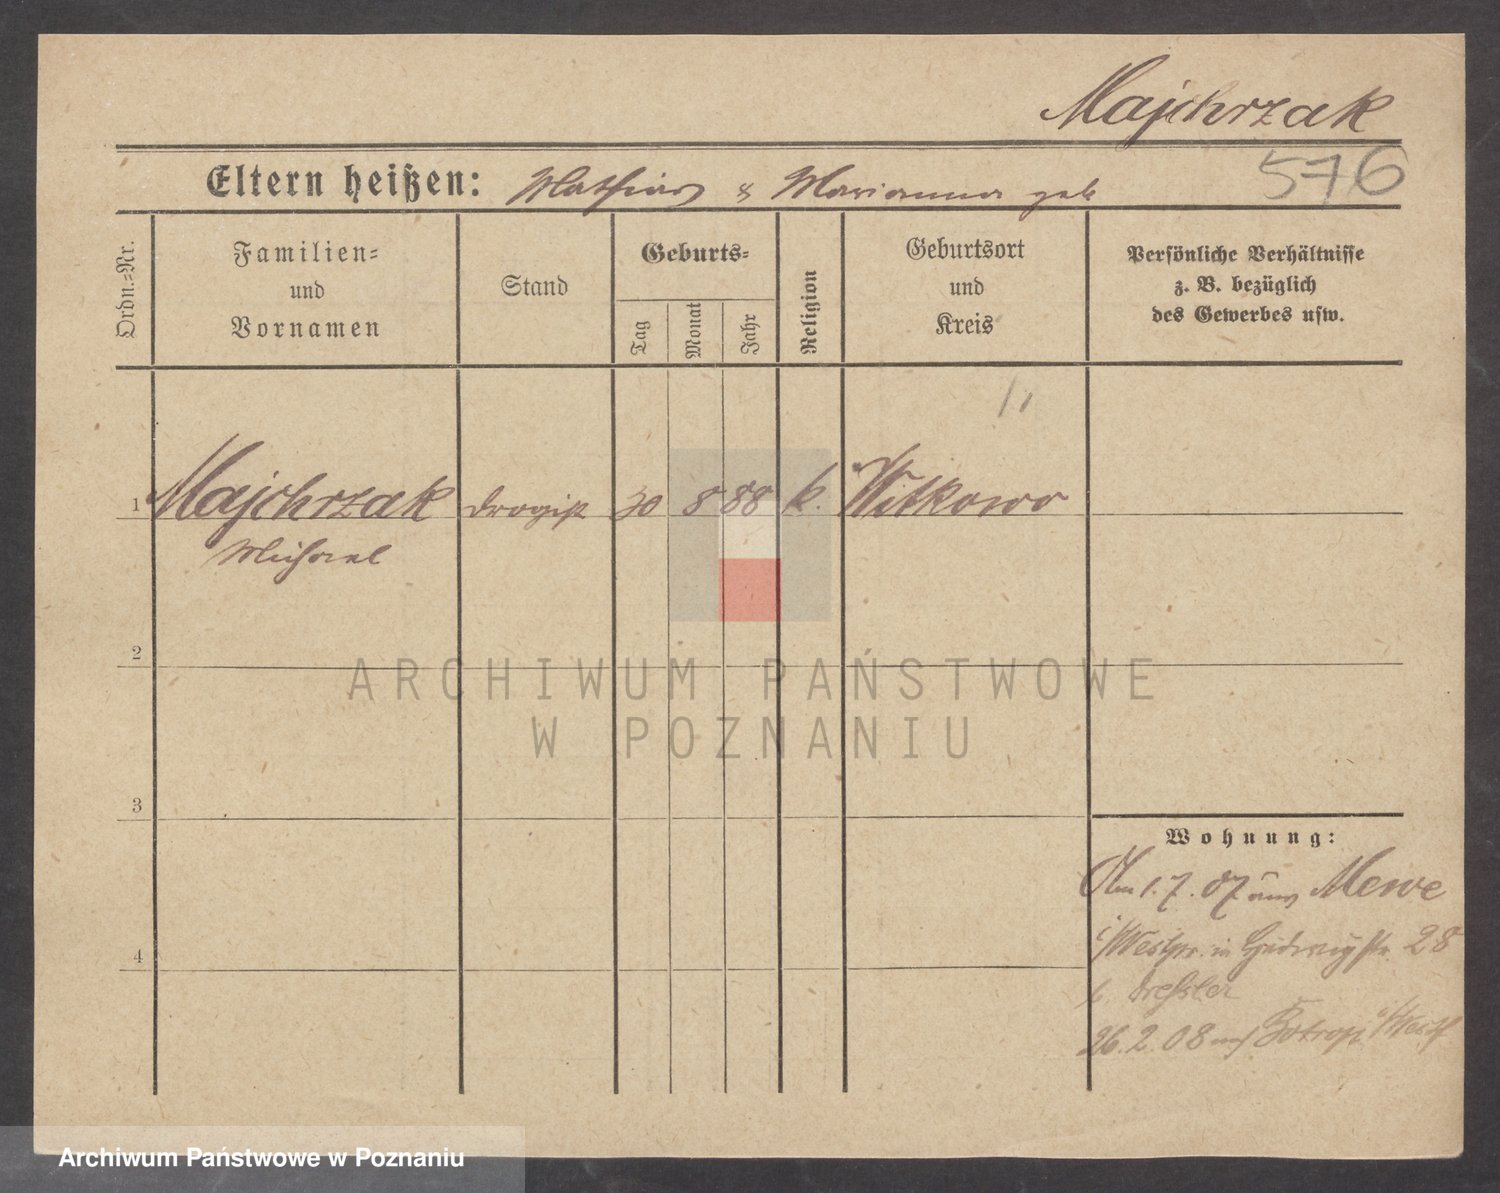 Majchrzak
576
Eltern heißen: Mathias & Marianna geb
Ordn.=Nr.
Familien=
und
Vornamen
Stand
Geburts=
Tag
Monat
Jahr
Religion
Geburtsort
und
Kreis
Persönliche Verhältnisse
z. B. bezüglich
des Gewerbes usw.
1 Majchrzak Drogist 30 8 88 k. Witkowo
Michael
2
3
4
Wohnung:
Am 1.7.07 aus Mewe
i/Westpr. in Hedwigstr. 28
b. Dressler
26.2.08 nach i/Westf
ARCHIWUM PAŃSTWOWE
W POZNANIU
Archiwum Państwowe w Poznaniu